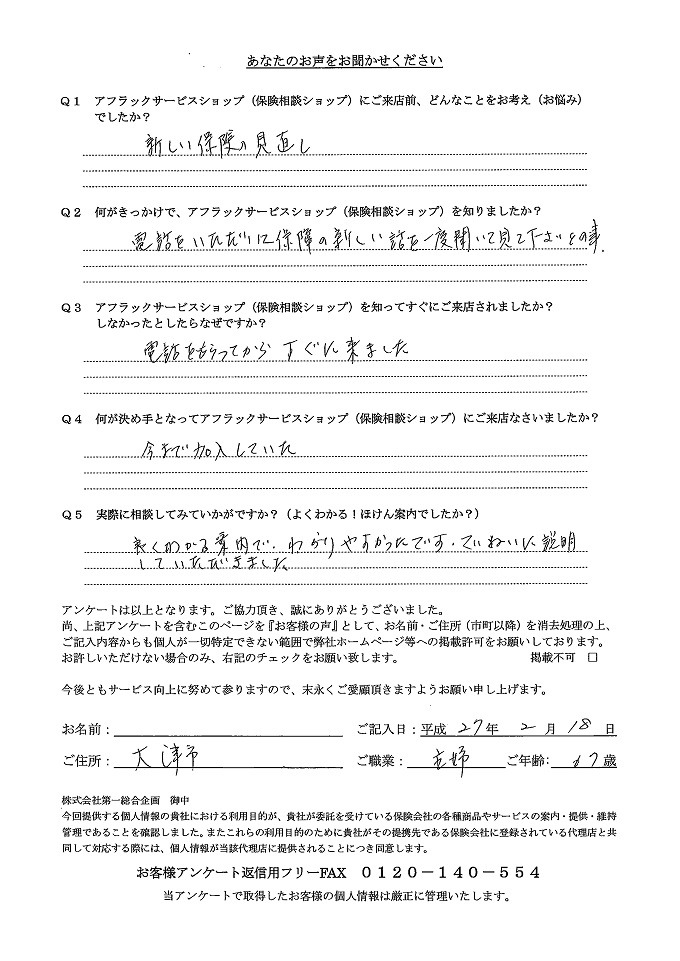 あなたのお声をお聞かせください
Q1 アフラックサービスショップ(保険相談ショップ)にご来店前、どんなことをお考え(お悩み)
でしたか?
新しい保険の見直し
Q2 何がきっかけで、アフラックサービスショップ(保険相談ショップ)を知りましたか?
電話をいただいた保障の新しい話を一度聞いて見て下さいとの事.
Q3 アフラックサービスショップ(保険相談ショップ)を知ってすぐにご来店されましたか?
しなかったとしたらなぜですか?
電話をもらってから すぐに来ました
Q4 何が決め手となってアフラックサービスショップ(保険相談ショップ)にご来店なさいましたか?
今まで加入していた
Q5 実際に相談してみていかがですか?(よくわかる!ほけん案内でしたか?)
良くわかる案内で、わかりやすかったです.ていねいに説明
していただきました
アンケートは以上となります。ご協力頂き、誠にありがとうございました。
尚、上記アンケートを含むこのページを『お客様の声』として、お名前・ご住所(市町以降)を消去処理の上、
ご記入内容からも個人が一切特定できない範囲で弊社ホームページ等への掲載許可をお願いしております。
お許しいただけない場合のみ、右記のチェックをお願い致します。 掲載不可 □
今後ともサービス向上に努めて参りますので、末永くご愛顧頂きますようお願い申し上げます。
お名前: ご記入日:平成 27年 2月 18日
ご住所: 大津市 ご職業: 主婦 ご年齢: 67歳
株式会社第一総合企画 御中
今回提供する個人情報の貴社における利用目的が、貴社が委託を受けている保険会社の各種商品やサービスの案内・提供・維持
管理であることを確認しました。またこれらの利用目的のために貴社がその提携先である保険会社に登録されている代理店と共
同して対応する際には、個人情報が当該代理店に提供されることにつき同意します。
お客様アンケート返信用フリーFAX 0120-140-554
当アンケートで取得したお客様の個人情報は厳正に管理いたします。